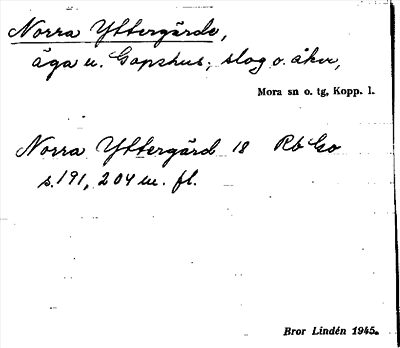 Norra Yttergärde,
äga u. Gopshus; slog o. åker,
Mora sn o. tg, Kopp. l.
Norra Yttergärd 18 Rb Go
s. 191, 204 m. fl.
Bror Lindén 1945.